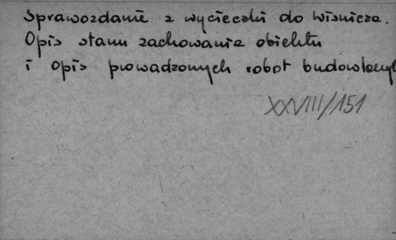 Sprawozdanie z wycieczki do Wiśnicza.
Opis stanu zachowania obiektu
i opis prowadzonych robót budowlanych
XXVIII/151